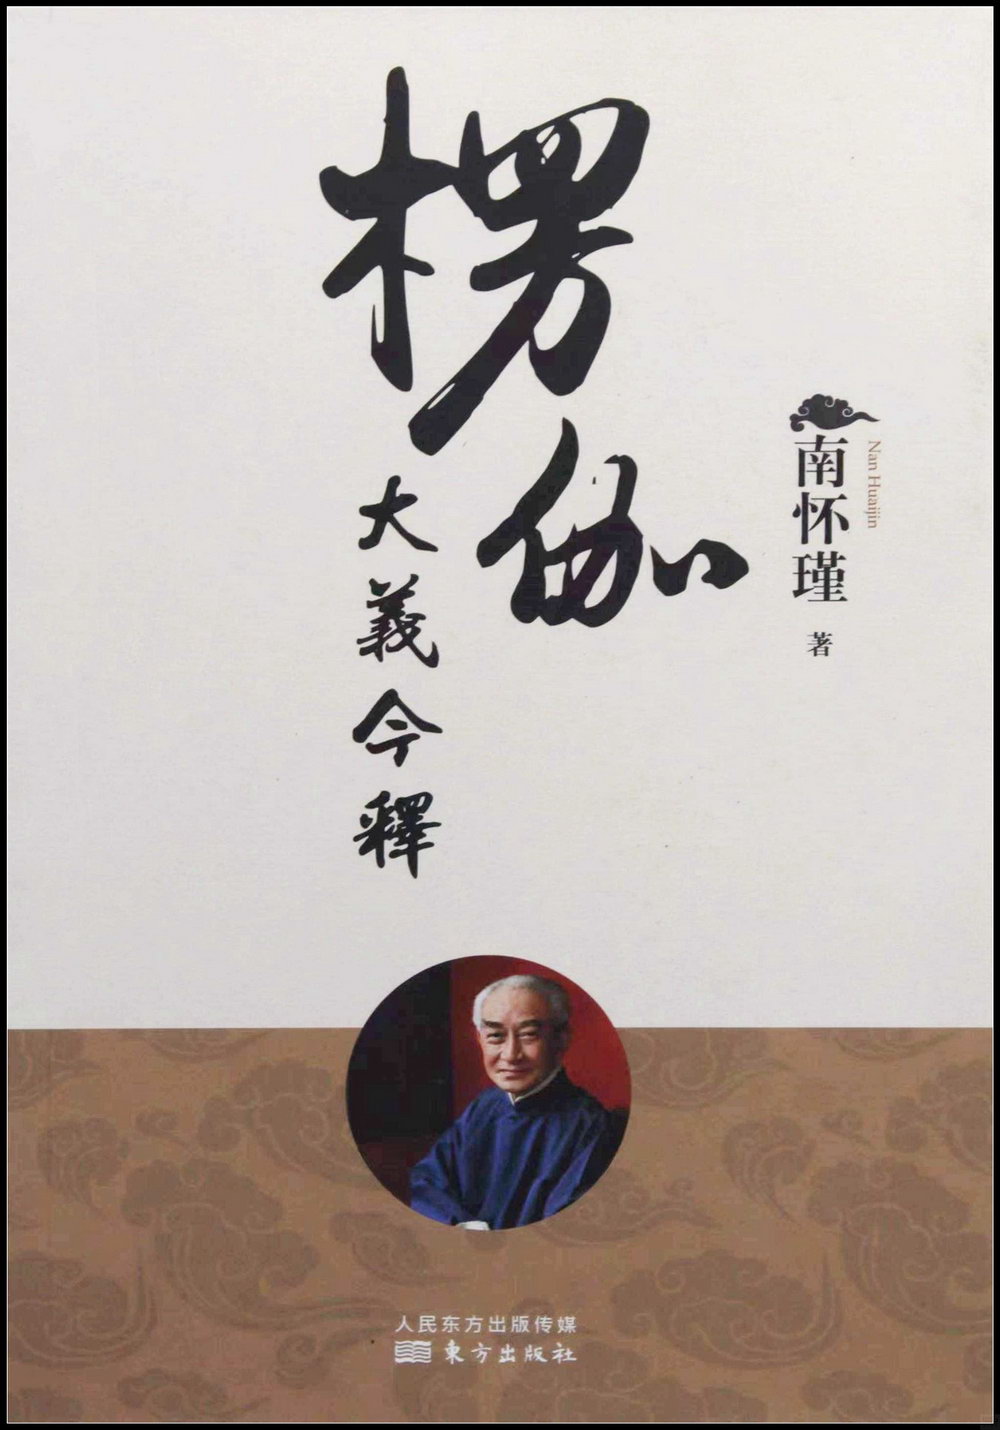 楞伽
大義今釋
南怀瑾 著
Nan Huaijin
人民东方出版传媒
東方出版社